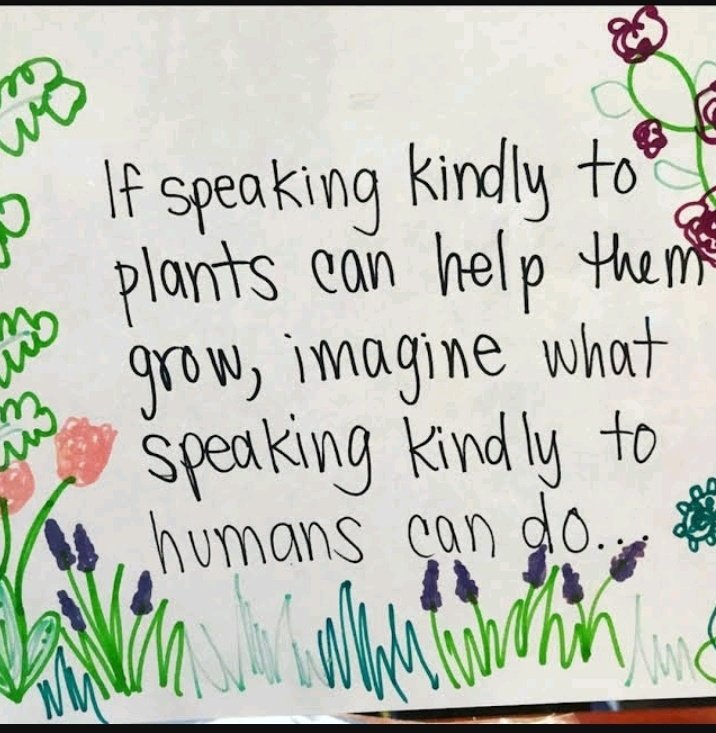 If speaking kindly to
plants can help them
grow, imagine what
speaking kindly to
humans can do...